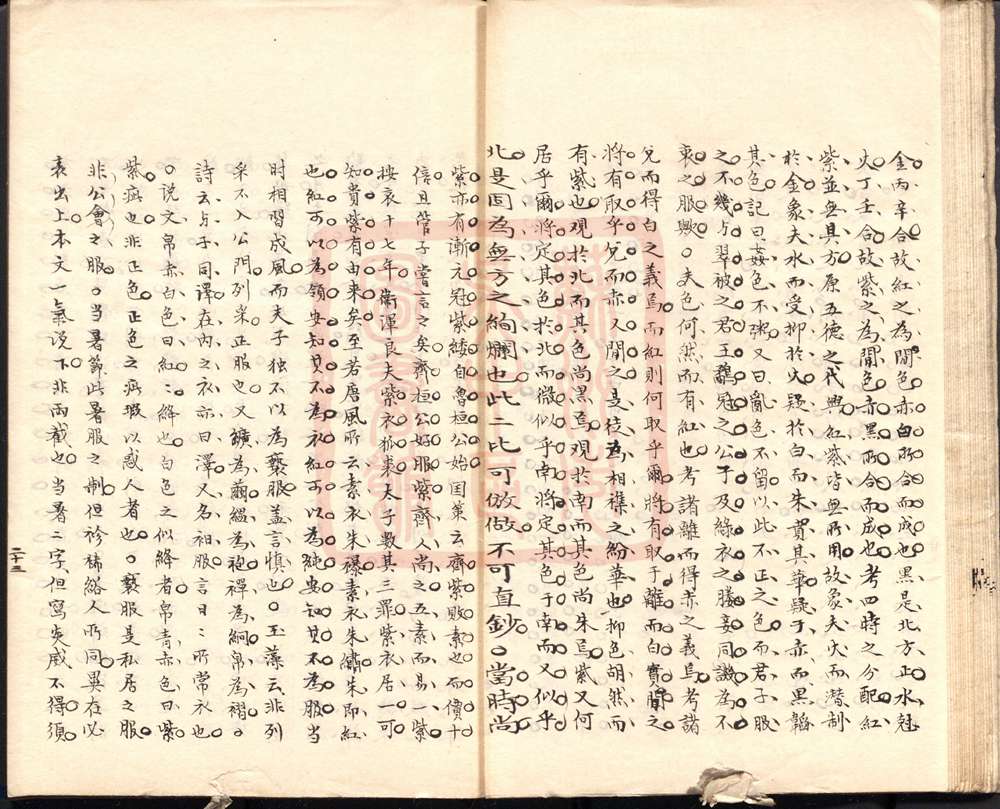 金丙辛合故紅之為間色赤白所合而成也黑是北方正水尅
火丁壬合故紫之為間色赤黑所合而成也考四時之分配紅
紫並無其方原五德之代興紅紫皆無所用故象夫火而潛制
於金象夫水而受抑於火疑於白而朱貫其華疑于赤而黑韜
其色記曰姦色不粥又曰亂色不留以此不正之色而君子服
之不幾与翠被之君王鷸冠之公子及綠衣之媵妾同譏為不
衷之服歟夫色何然而有紅也考諸離而得赤之義焉考諸
兌而得白之義焉而紅則何取乎爾將有取于離而白實間之
將有取乎兌而赤又間之是徒為相襍之紛華也抑色胡然而
有紫也觀於北而其色尚黑焉觀於南而其色尚朱焉紫又何
居乎爾將定其色於北而微似乎南將定其色于南而又似乎
北是固為無方之絢爛也此二比可倣做不可直鈔當時尚
紫亦有漸元冠紫緌自魯桓公始囯策云齊紫敗素也而價十
倍且管子嘗言之矣齊桓公好服紫齊人尚之五素而易一紫
按哀十七年衛渾良夫紫衣狐裘太子數其三罪紫衣居一可
知貴紫有由来矣至若唐風所云素衣朱襮素衣朱繡朱即紅
也紅可以為領安知其不為衣紅可以為純安知其不為服當
時相習成風而夫子独不以為褻服盖言慎也玉藻云非列
采不入公門列采正服也又纊為繭緼為袍襌為絅帛為褶
詩云与子同澤在內之衣亦曰澤又名衵服言日〻所常衣也
說文帛赤白色曰紅〻絳也白色之似絳者帛青赤色曰紫
紫疵也非正色正色之疵瑕以惑人者也褻服是私居之服
非公會之服當暑節此暑服之制但袗絺綌人所同異在必
表出上本文一氣说下非兩截也当暑二字但寫炎威不得須
二十三